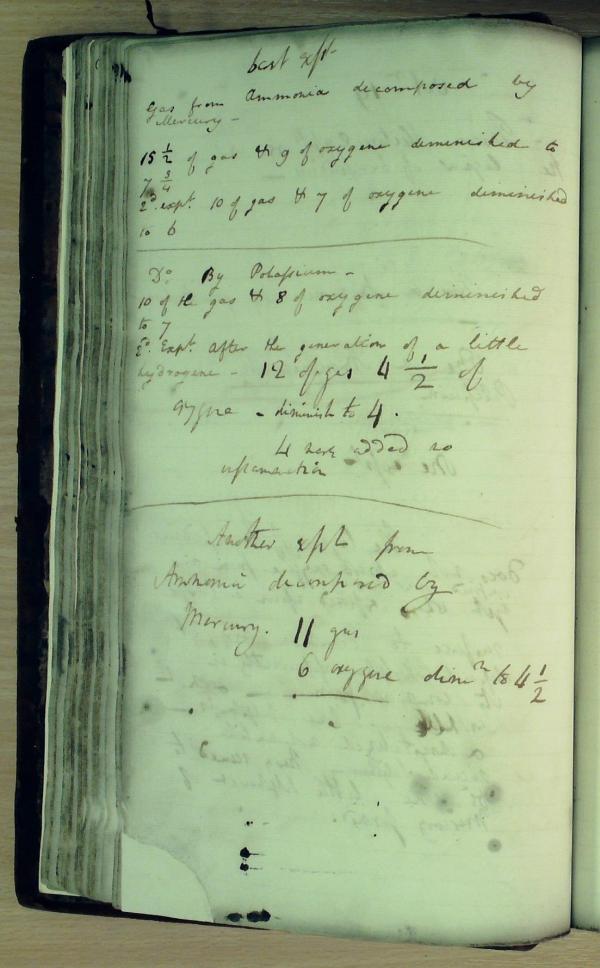 best expt.
Gas from Ammonia decomposed by
Mercury –
15 1/2 of gas & 9 of oxygene diminished to
7 3/4
2d. expt. 10 of gas & 7 of oxygene diminished
to 6
Do By Potassium –
10 of the gas & 8 of oxygene diminished
to 7
2d. Expt. after the generation of a little
hydrogene – 12 of gas 4 1/2 of
oxygene – diminish to 4.
4 were added no
inflammation
Another expt from
Ammonia decomposed by
Mercury. 11 gas
6 oxygene dimd to 4 1/2